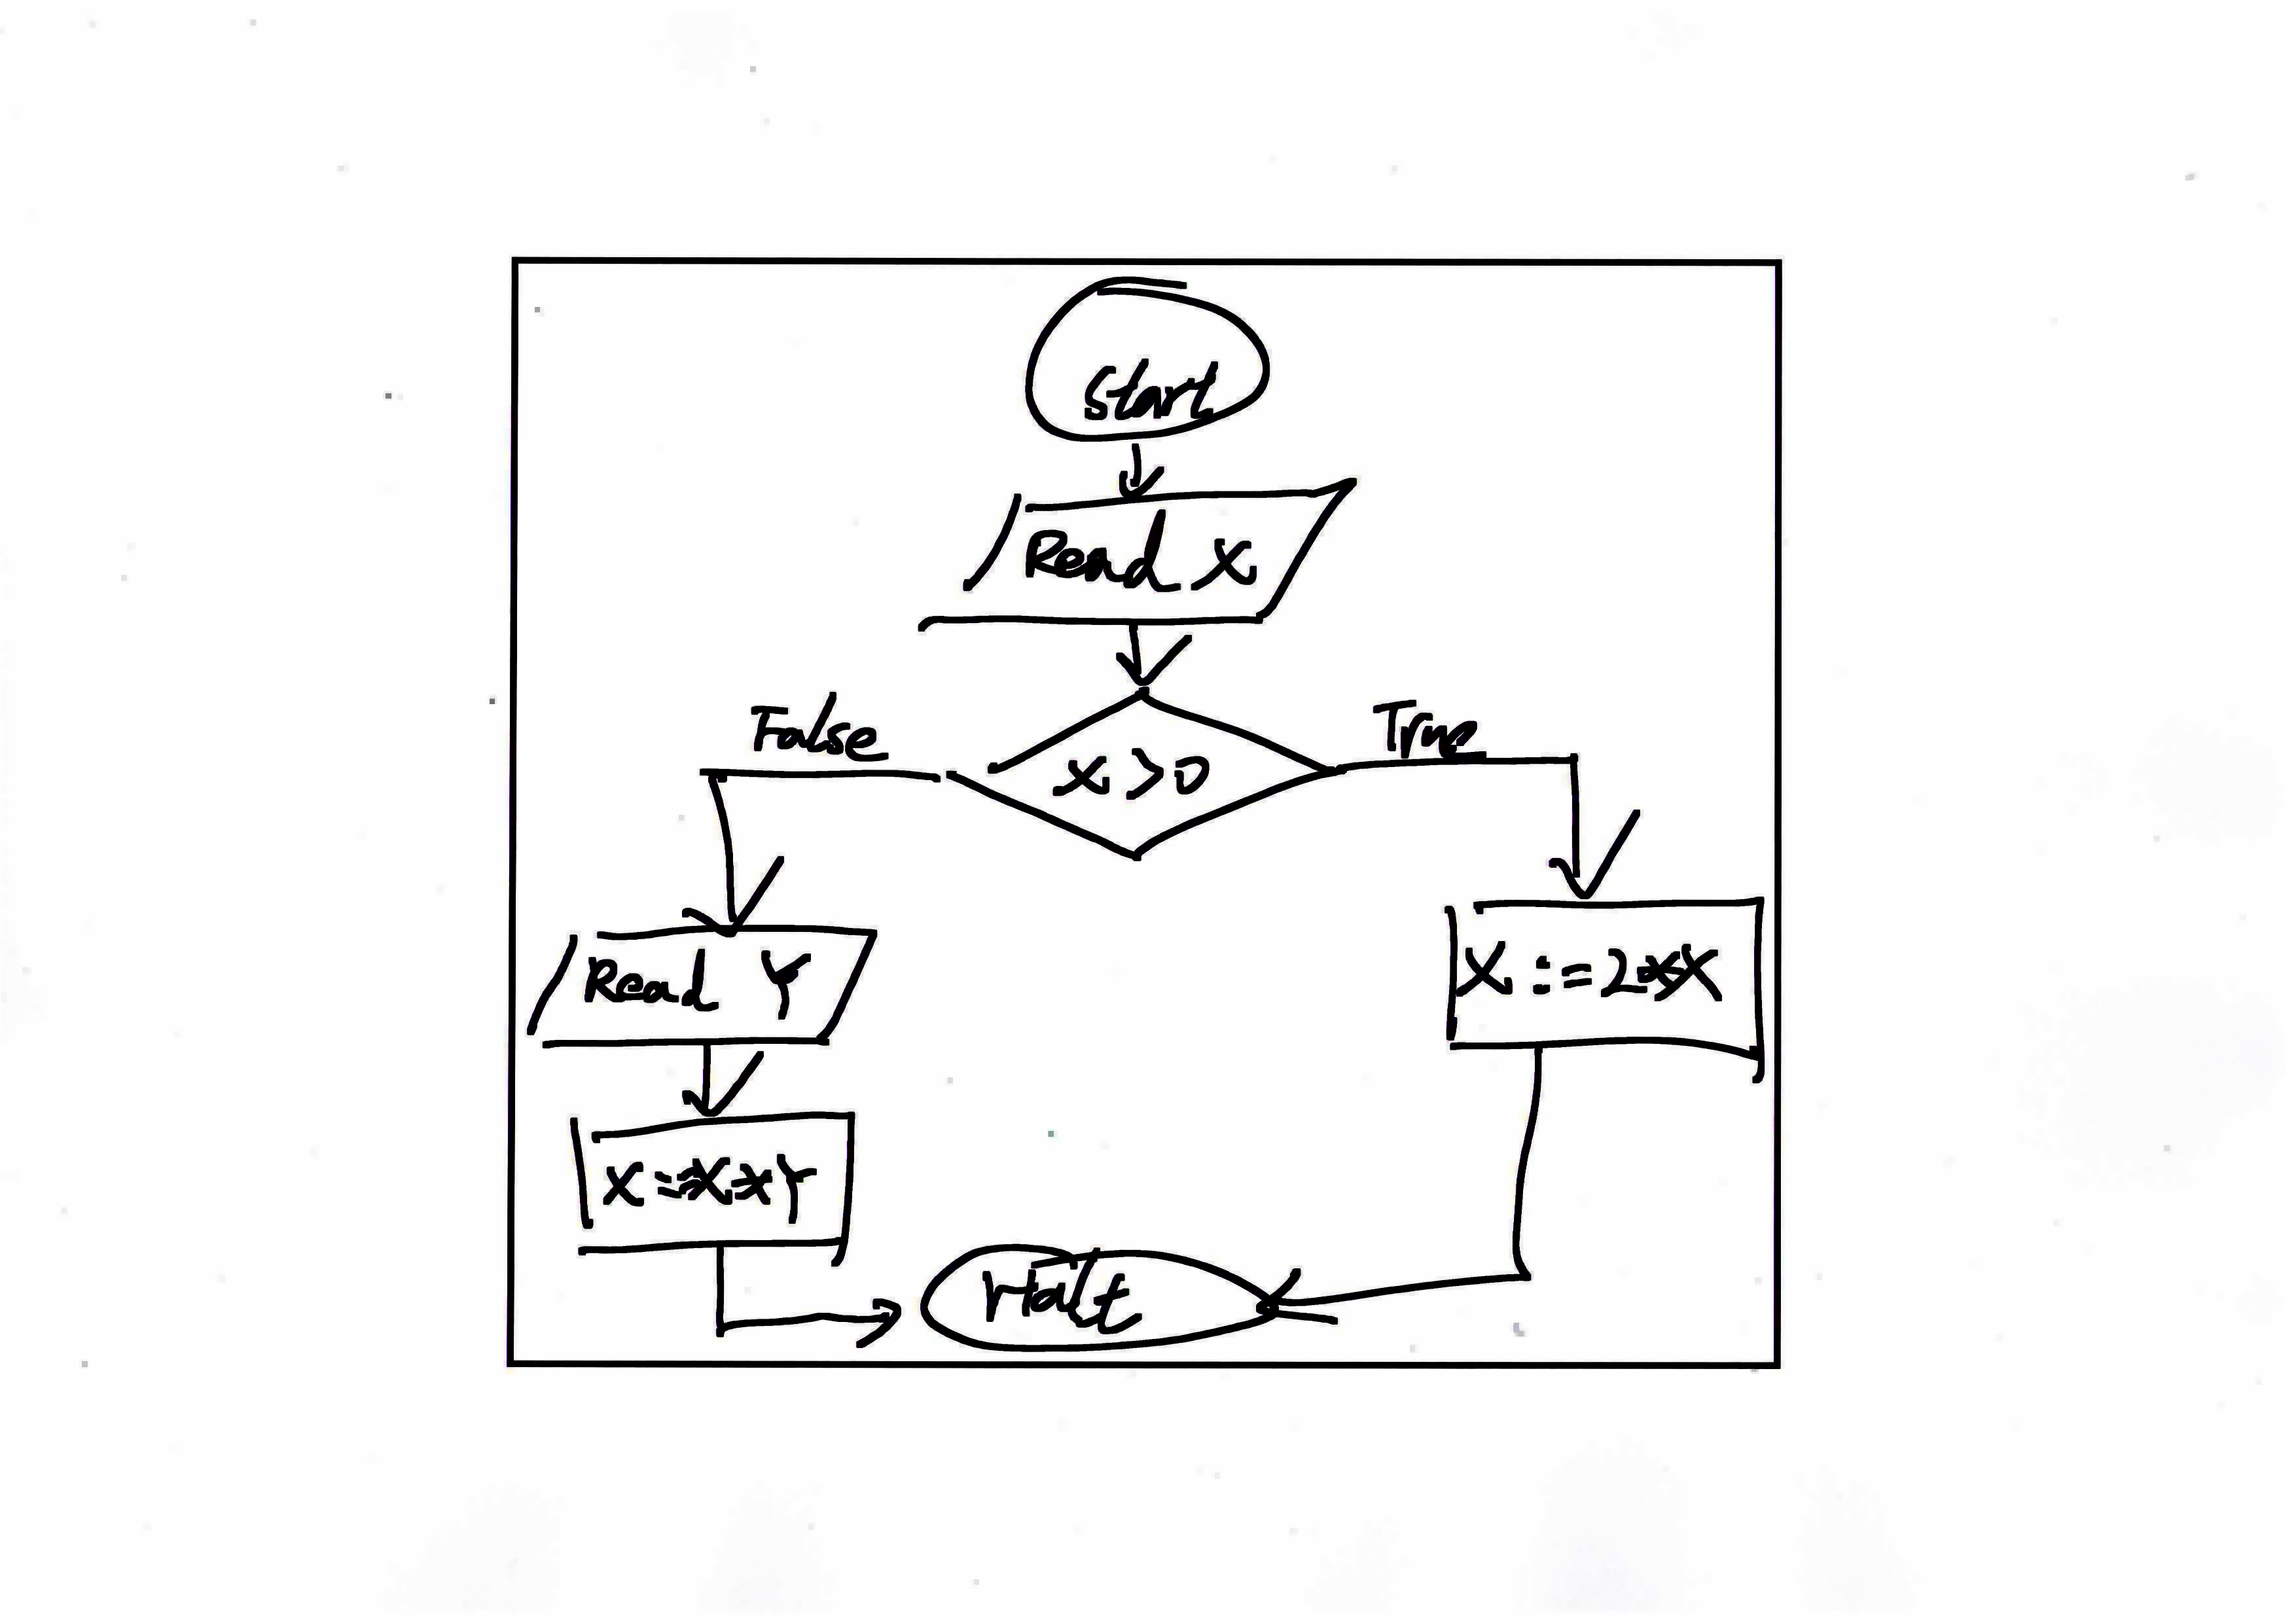 Start
Read X
False
True
X>0
Read Y
X:=2*X
X:=X*Y
Halt